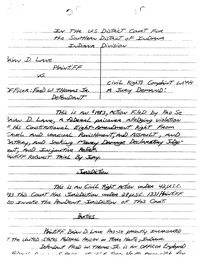 IN THE US DISTRICT COURT FOR
the Southern District of Indiana
Indiana Division
Wm D. Lane
Plaintiff
vs.
Civil Rights Complaint with
A Jury Demand
Officer: Fred W Thomas Jr.
Defendant
This is an 1983, Action Filed by Pro Se
Wm D. Lane, a federal prisoner alleging violation
His Constitutional Eight Amendment Right From
Cruel and Unusual Punishment, And Assault, and
Battery, and Seeking Money Damage Declaratory Judge-
ment, and Injunctive Relief
Plaintiff Request Trial By Jury.
Jurisdiction
This is an Civil Right Action under 42 U.S.C.
1983 This Court Has Jurisdiction under 28 U.S.C. 1331 Plaintiff
to invoke the Jurisdiction of this Court
Parties
Plaintiff Wm D Lane Pro-se presently incarcerated
THE UNITED STATES Federal Prison in Terre Haute, Indiana.
Defendant Fred W Thomas Jr. is an Officer Employed